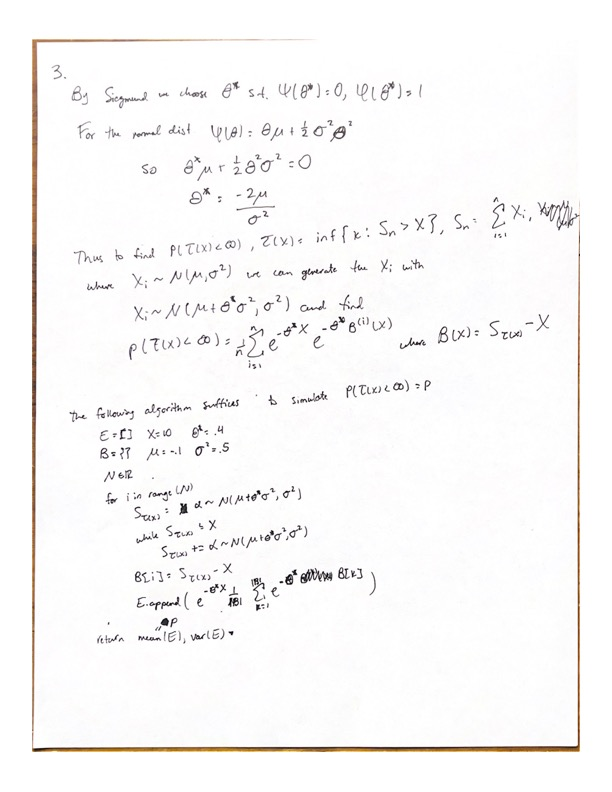 3.
By Siegmund we choose θ* s.t. Ψ(θ*)=0, φ(θ*)=1
For the normal dist Ψ(θ)= θμ + ½ σ²θ²
so θ*μ + ½ θ²σ² = 0
θ* = -2μ / σ²
Thus to find P(τ(x)<∞), τ(x)= inf{k: Sₙ > X}, Sₙ = Σⁿᵢ₌₁ Xᵢ,
where Xᵢ ~ N(μ,σ²) we can generate the Xᵢ with
Xᵢ ~ N(μ+θ*σ², σ²) and find
P(τ(x)<∞) = 1/n Σⁿᵢ₌₁ e^(-θ*X) e^(-θ*B⁽ⁱ⁾(x)) where B(x) = S_τ(x) - X
The following algorithm suffices to simulate P(τ(x)<∞)=P
E=[] X=10 θ*=.4
B={} μ=-.1 σ²=.5
N∈ℝ
for i in range(N)
S_τ(x) = α~N(μ+θ*σ², σ²)
while S_τ(x) ≤ X
S_τ(x) += α~N(μ+θ*σ²,σ²)
B[i] = S_τ(x) - X
E.append( e^(-θ*X) 1/|B| Σ^|B|ₖ₌₁ e^(-θ* B[k]) )
return mean(E), var(E)